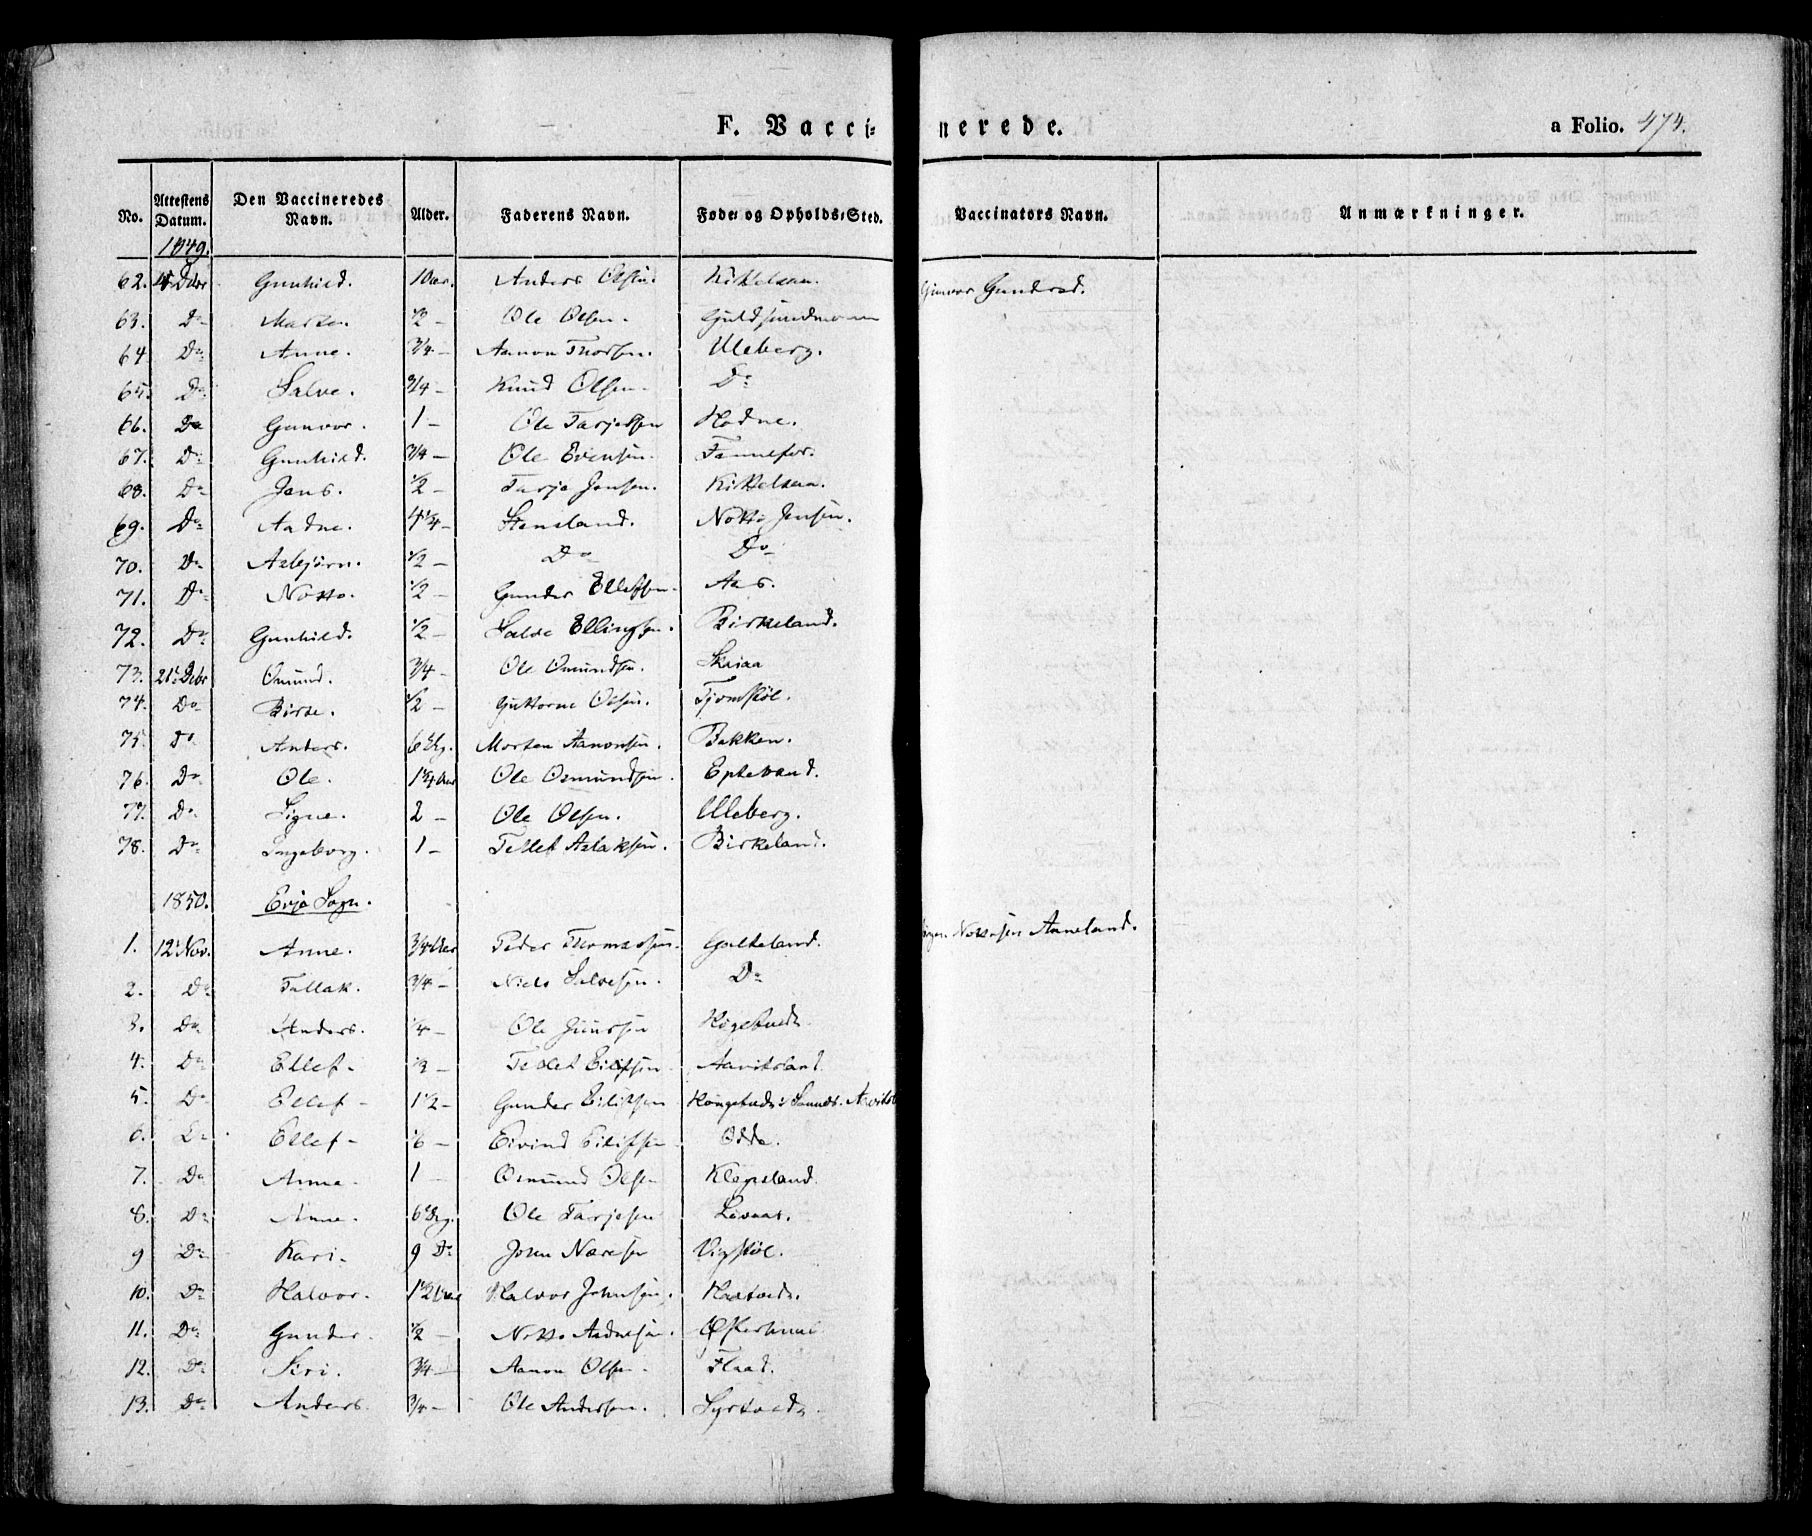 F. Vacci- nerede. a Folio. 474.
No. Attestens Datum. Den Vaccineredes Navn. Alder. Faderens Navn. Føde- og Opholds-Sted. Vaccinators Navn. Anmærkninger.
1849.
62. Gunhild. Anders Olsen. Kittelsaa. Gunvor Gundrod.
63. Do Marte. 1/2 Ole Olsen. Guldsmedmoen
64 Do Anne. 3/4 — Aanon Thorsen. Uleberg.
65. Do Salve. 3/4 — Knud Olsen. Do
66. Do Gunvor. 1 — Ole Tarjesen Hodne.
67. Do Gunhild. 3/4 — Ole Evensen. Fannefos.
68. Do Jens. 1/2 — Tarje Jensen. Kittelsaa.
69. Do Aadne. — Stensland. Notto Jensen.
70. Do Asbjørn. 1/2 — Do Do
71. Do Notto. 1/2 — Gunder Ellefsen. Aas.
72. Do Gunhild. 1/2 — Salve Ellingsen. Birkeland.
73. 21 Debr Omund. 3/4 — Ole Omundsen. Skriaa
74. Do Birte. 1/2 — Guttorm Olsen. Tjomstøl.
75. Do Anders. 6 Morten Aanonsen. Bakken.
76. Do Ole. Ole Osmundsen. Eptevand.
77. Do Signe. 2 — Ole Olsen. Uleberg.
78. Do Ingeborg. 1 — Tellef Aslaksen. Birkeland.
1850. Evje Sogn.
1. 12 Nov. Anne. 3/4 Aar Peder Thomassen. Galteland. Nottosen Aaneland.
2. Do Tallak. 3/4 — Niels Salvesen. Do
3. Do Anders. 1/4 — Ole
4. Do Ellef — Tellef Eilifsen Aavitsland.
5. Do Ellef — 1 1/2 — Gunder Eilifsen
6. Do Ellef — Eivind Eilifsen Odde.
7. Do Anne. 1 — Osmund Olsen Klepsland.
8. Do Anne. 6 Ole Tarjesen
9 Do Kari — 9 Do John Vigstøl.
10. Do Halvor. 1 1/2 Aar Halvor Johnsen.
11. Do Gunder. 1/2 — Notto Aadnesen.
12. Do Siri. 3/4 — Aanon Olsen. Flaad.
13. Do Anders. 3/4 — Ole Andersen. Syrtveds